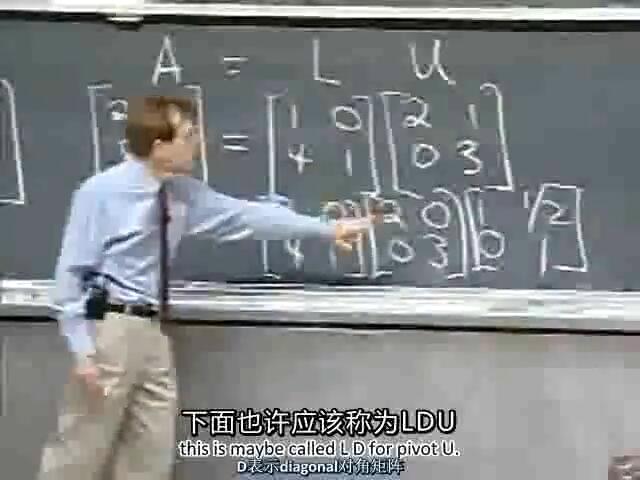 A = L U
[2 ] = [1 0] [2 1]
[4 1] [0 3]
[2 0] [1 1/2]
[4 1] [0 3] [0 1]
下面也许应该称为LDU
this is maybe called L D for pivot U.
D表示diagonal对角矩阵